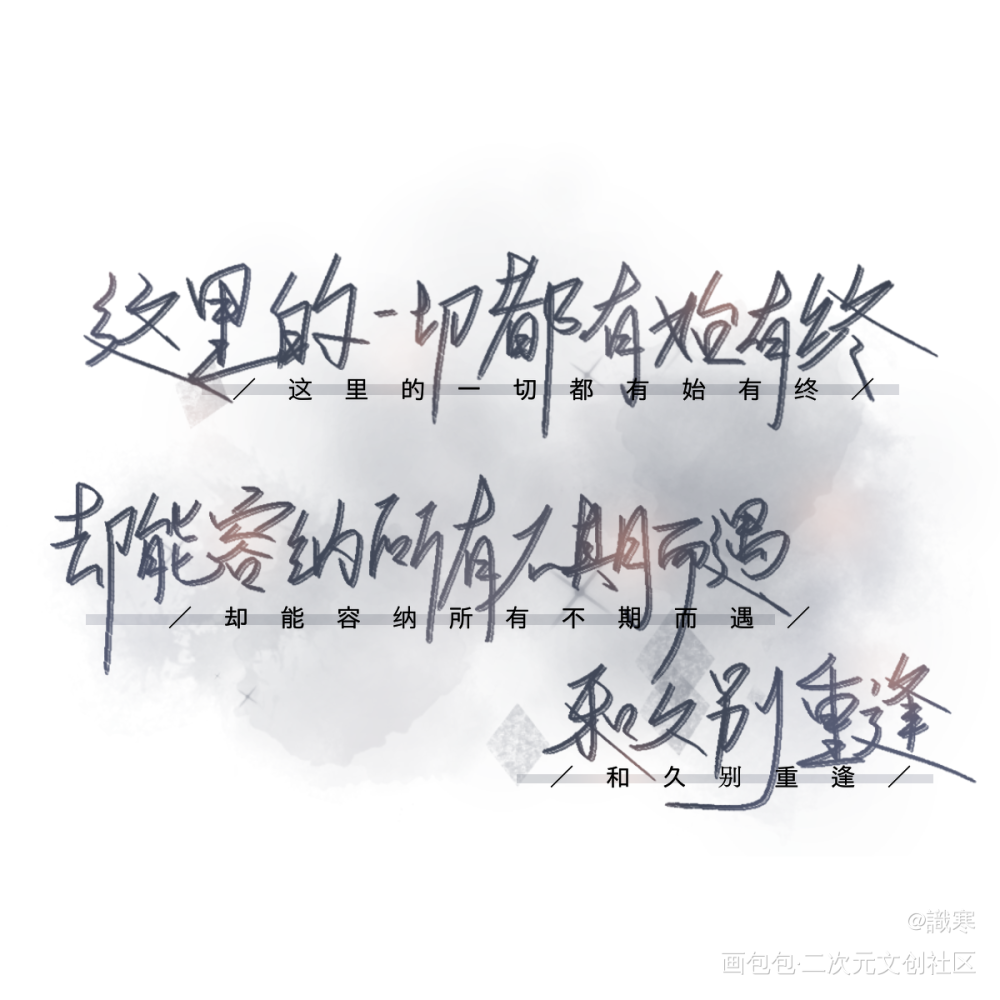 这里的一切都有始有终
／这里的一切都有始有终／
却能容纳所有不期而遇
／却能容纳所有不期而遇／
和久别重逢
／和久别重逢／
@識寒
画包包·二次元文创社区